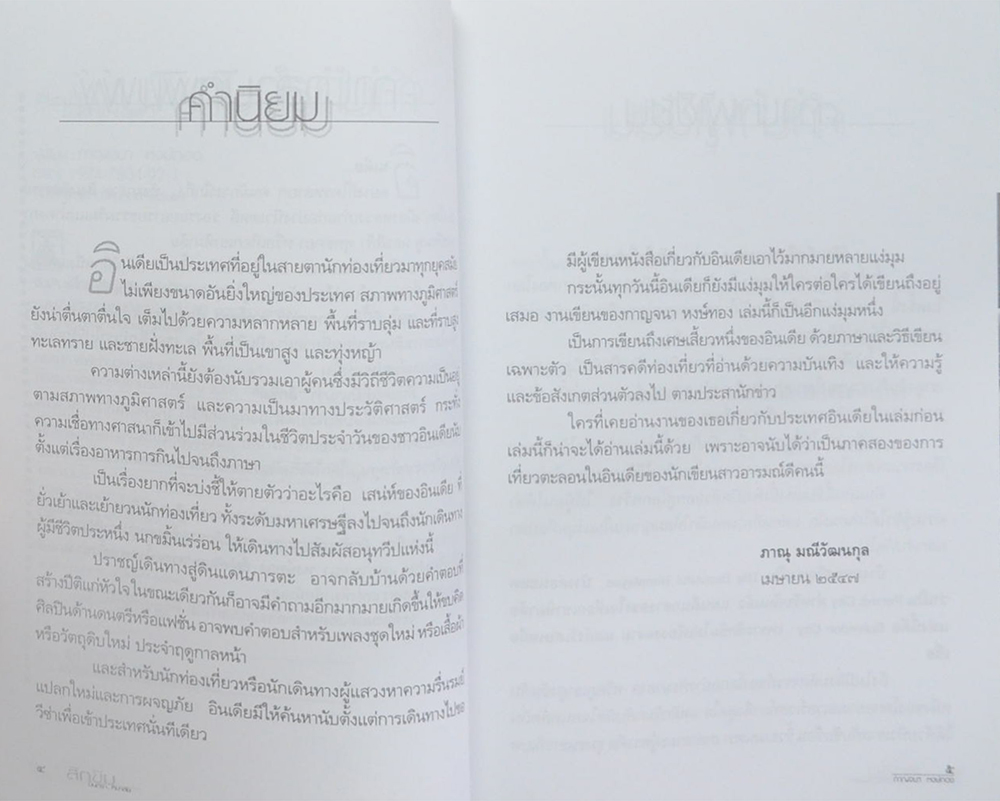 คำนิยม
อินเดียเป็นประเทศที่อยู่ในสายตานักท่องเที่ยวมาทุกยุคสมัย
ไม่เพียงขนาดอันยิ่งใหญ่ของประเทศ สภาพทางภูมิศาสตร์
ยังน่าตื่นตาตื่นใจ เต็มไปด้วยความหลากหลาย พื้นที่ราบลุ่ม และที่ราบสูง
ทะเลทราย และชายฝั่งทะเล พื้นที่เป็นเขาสูง และทุ่งหญ้า
ความต่างเหล่านี้ยังต้องนับรวมเอาผู้คนซึ่งมีวิถีชีวิตความเป็นอยู่
ตามสภาพทางภูมิศาสตร์ และความเป็นมาทางประวัติศาสตร์ กระทั่ง
ความเชื่อทางศาสนาก็เข้าไปมีส่วนร่วมในชีวิตประจำวันของชาวอินเดียนับ
ตั้งแต่เรื่องอาหารการกินไปจนถึงภาษา
เป็นเรื่องยากที่จะบ่งชี้ให้ตายตัวว่าอะไรคือ เสน่ห์ของอินเดีย ที่
ยั่วเย้าและเย้ายวนนักท่องเที่ยว ทั้งระดับมหาเศรษฐีลงไปจนถึงนักเดินทาง
ผู้มีชีวิตประหนึ่ง นกขมิ้นเร่ร่อน ให้เดินทางไปสัมผัสอนุทวีปแห่งนี้
ปราชญ์เดินทางสู่ดินแดนภารตะ อาจกลับบ้านด้วยคำตอบที่
สร้างปีติแก่หัวใจในขณะเดียวกันก็อาจมีคำถามอีกมากมายเกิดขึ้นให้ขบคิด
ศิลปินด้านดนตรีหรือแฟชั่น อาจพบคำตอบสำหรับเพลงชุดใหม่ หรือเสื้อผ้า
หรือวัตถุดิบใหม่ ประจำฤดูกาลหน้า
และสำหรับนักท่องเที่ยวหรือนักเดินทางผู้แสวงหาความรื่นรมย์
แปลกใหม่และการผจญภัย อินเดียมีให้ค้นหานับตั้งแต่การเดินทางไปขอ
วีซ่าเพื่อเข้าประเทศนั่นทีเดียว
๔
มีผู้เขียนหนังสือเกี่ยวกับอินเดียเอาไว้มากมายหลายแง่มุม
กระนั้นทุกวันนี้อินเดียก็ยังมีแง่มุมให้ใครต่อใครได้เขียนถึงอยู่
เสมอ งานเขียนของกาญจนา หงษ์ทอง เล่มนี้ก็เป็นอีกแง่มุมหนึ่ง
เป็นการเขียนถึงเศษเสี้ยวหนึ่งของอินเดีย ด้วยภาษาและวิธีเขียน
เฉพาะตัว เป็นสารคดีท่องเที่ยวที่อ่านด้วยความบันเทิง และให้ความรู้
และข้อสังเกตส่วนตัวลงไป ตามประสานักข่าว
ใครที่เคยอ่านงานของเธอเกี่ยวกับประเทศอินเดียในเล่มก่อน
เล่มนี้ก็น่าจะได้อ่านเล่มนี้ด้วย เพราะอาจนับได้ว่าเป็นภาคสองของการ
เที่ยวตะลอนในอินเดียของนักเขียนสาวอารมณ์ดีคนนี้
ภาณุ มณีวัฒนกุล
เมษายน ๒๕๔๗
๕
กาญจนา หงษ์ทอง